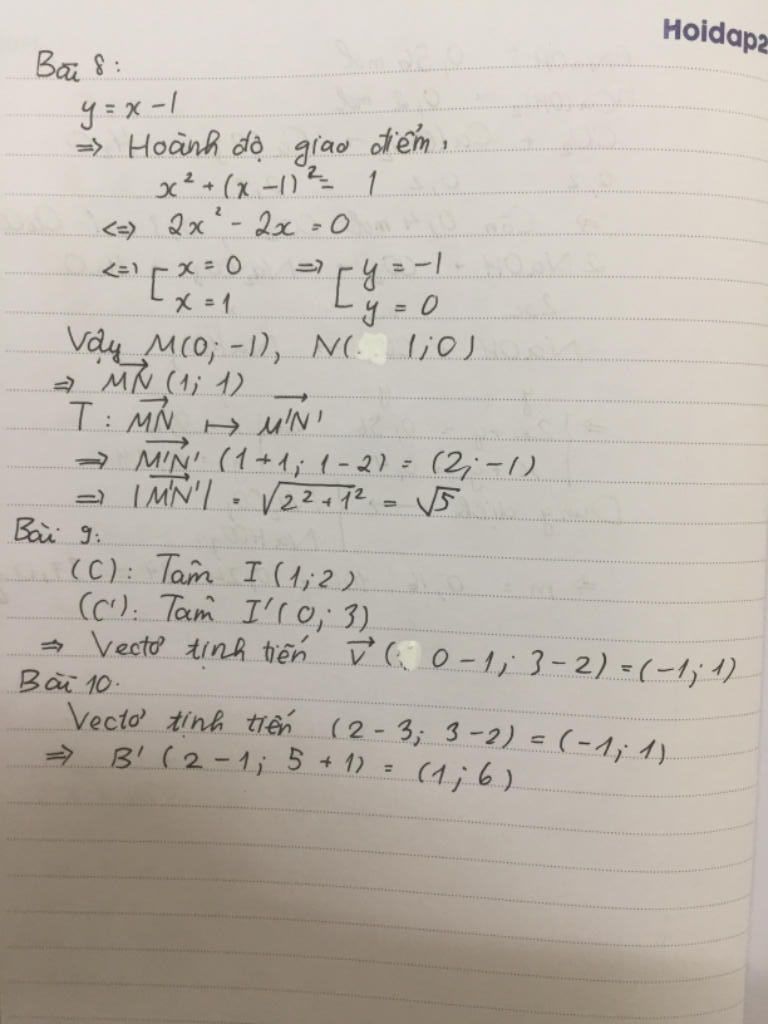 Hoidap2
Bài 8:
y = x - 1
=> Hoành độ giao điểm,
x² + (x - 1)² = 1
<=> 2x² - 2x = 0
<=> [ x = 0 => [ y = -1
x = 1 y = 0
Vậy M(0; -1), N( 1; 0)
=> MN→ (1; 1)
T : MN→ ↦ M'N'→
=> M'N'→ (1+1; 1-2) = (2; -1)
=> |M'N'→| = √(2² + 1²) = √5
Bài 9:
(C): Tâm I (1; 2)
(C'): Tâm I' (0; 3)
=> Vectơ tịnh tiến v→ ( 0 - 1; 3 - 2) = (-1; 1)
Bài 10.
Vectơ tịnh tiến (2 - 3; 3 - 2) = (-1; 1)
=> B' (2 - 1; 5 + 1) = (1; 6)